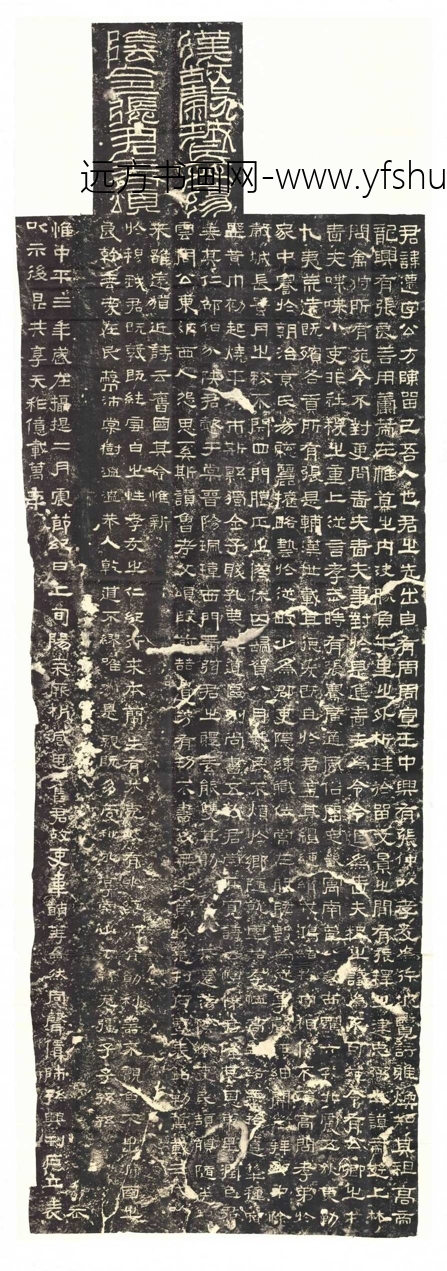 漢故穀城長蕩
陰令張君表頌
远方书画网-www.yfshu
君諱遷字公方陳留己吾人也君之先出自有周周宣王中興有張仲以孝友為行披覽詩雅煥知其祖高帝
龍興有張良善用籌策在帷幕之內決勝負千里之外析珪於留文景之間有張釋之建忠弼之謨帝遊上林
問禽狩所有苑令不對更問嗇夫嗇夫事對於是進嗇夫為令令退為嗇夫釋之議為不可苑令有公卿之才
嗇夫喋喋小吏非社稷之重上從言孝武時有張騫廣通風俗開定畿寓南苞八蠻西羈六戎北震五狄東勤
九夷荒遠既殯各貢所有張是輔漢世載其德爰既且於君蓋其繵縺纘戎鴻緒牧守相係不殞高問孝弟於
家中謇於朝治京氏易聰麗權略藝於從畋少為郡吏隱練職位常在股肱數為從事聲無細聞徵拜郎中除
穀城長蠶月之務不閉四門臘正之僚休囚歸賀八月筭民不煩於鄉隨就虛落存恤高年路無拾遺犁種宿
野黃巾初起燒平城市斯縣獨全子賤孔蔑其道區別尚書五教君崇其寬詩云愷悌君隆其恩東里潤色君
垂其仁邵伯分陝君懿于棠晉陽珮瑋西門帶弦君之體素能雙其勛流化八基遷蕩陰令吏民頡頏隨送如
雲周公東征西人怨思奚斯讚魯考父頌殷前喆遺芳有功不書後無述焉於是刊石豎表銘勒萬載三代以
來雖遠猶近詩云舊國其命惟新
於穆我君既敦既純雪白之性孝友之仁紀行求本蘭生有芬克岐有兆綏御有勛利器不覿魚不出淵國之
良幹垂愛在民蔽沛棠樹溫溫恭人乾道不繆唯淑是親既多受祉永享南山干祿無疆子子孫孫
惟中平三年歲在攝提二月震節紀日上旬陽氣厥析感思舊君故吏韋萌等僉然同聲賃師孫興刊石立表
以示後昆共享天祚億載萬年